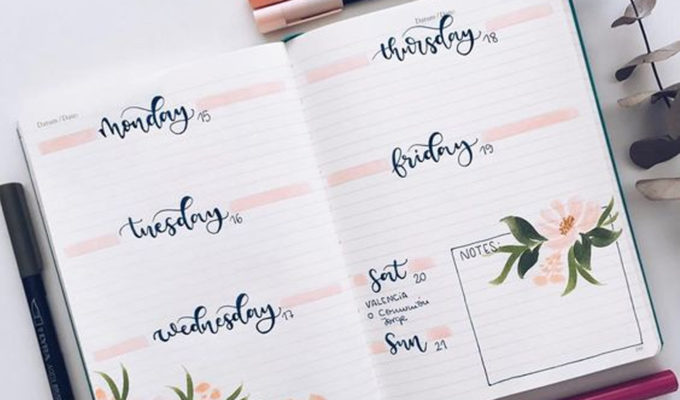 Datum / Date:
monday 15
tuesday 16
wednesday 17
Datum / Date:
thursday 18
friday 19
Sat 20
VALENCIA
o comunión
Jorge
Sun 21
NOTES: